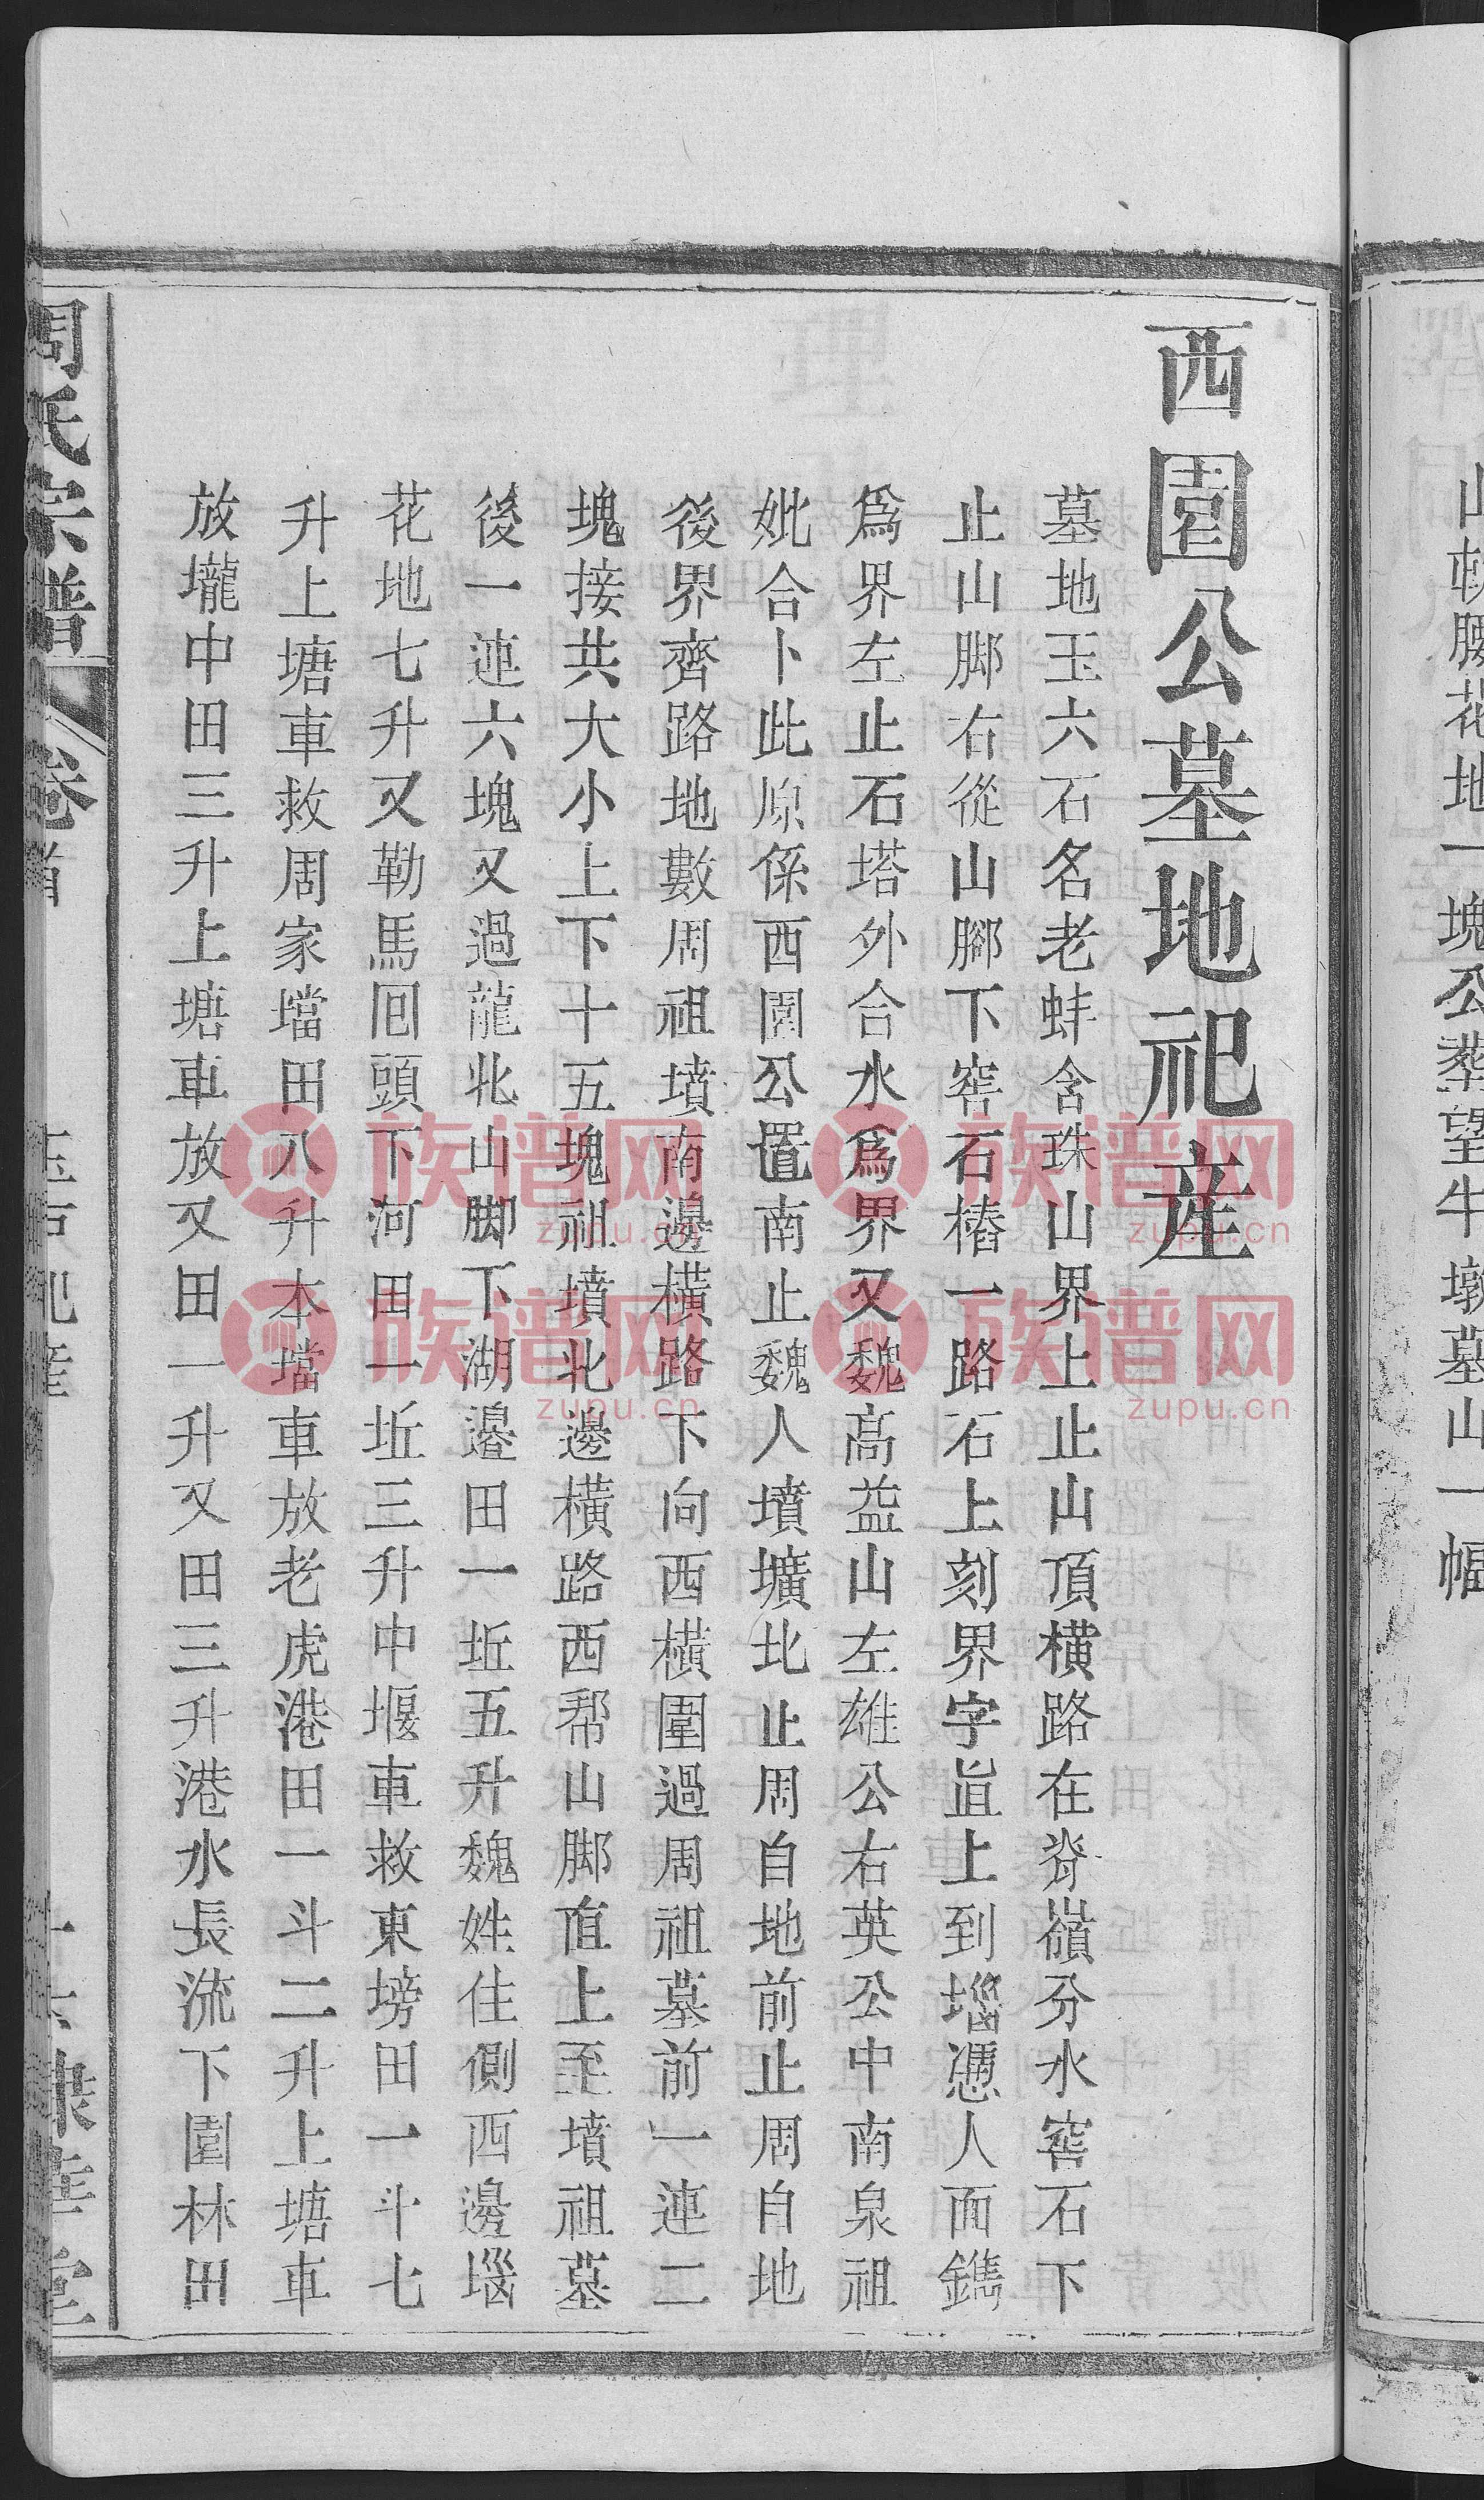 山乾腰花地一塊公葬望牛墩墓山一幅
西園公墓地祀産
墓地玉六石名老蚌含珠山界上止山頂橫路在脊嶺分水窖石下
止山脚右從山脚下窖石樁一路石上刻界字直上到堖憑人面鐫
爲界左止石塔外合水爲界又魏高益山左雄公右英公中南泉祖
妣合卜此原係西園公置南止魏人墳壙北止周自地前止周自地
後界齊路地數周祖墳南邊橫路下向西橫圍過周祖墓前一連二
塊接共大小上下十五塊祖墳北邊橫路西帮山脚直上至墳祖墓
後一連六塊又過龍北山脚下湖邊田一坵五升魏姓住側西邊堖
花地七升又勒馬囘頭下河田一坵三升中堰車救東塝田一斗七
升上塘車救周家壋田八升本壋車放老虎港田一斗二升上塘車
放壠中田三升上塘車放又田一升又田三升港水長流下園林田
周氏宗譜 卷首
族谱网
zupu.cn
族谱网
zupu.cn
族谱网
zupu.cn
族谱网
zupu.cn